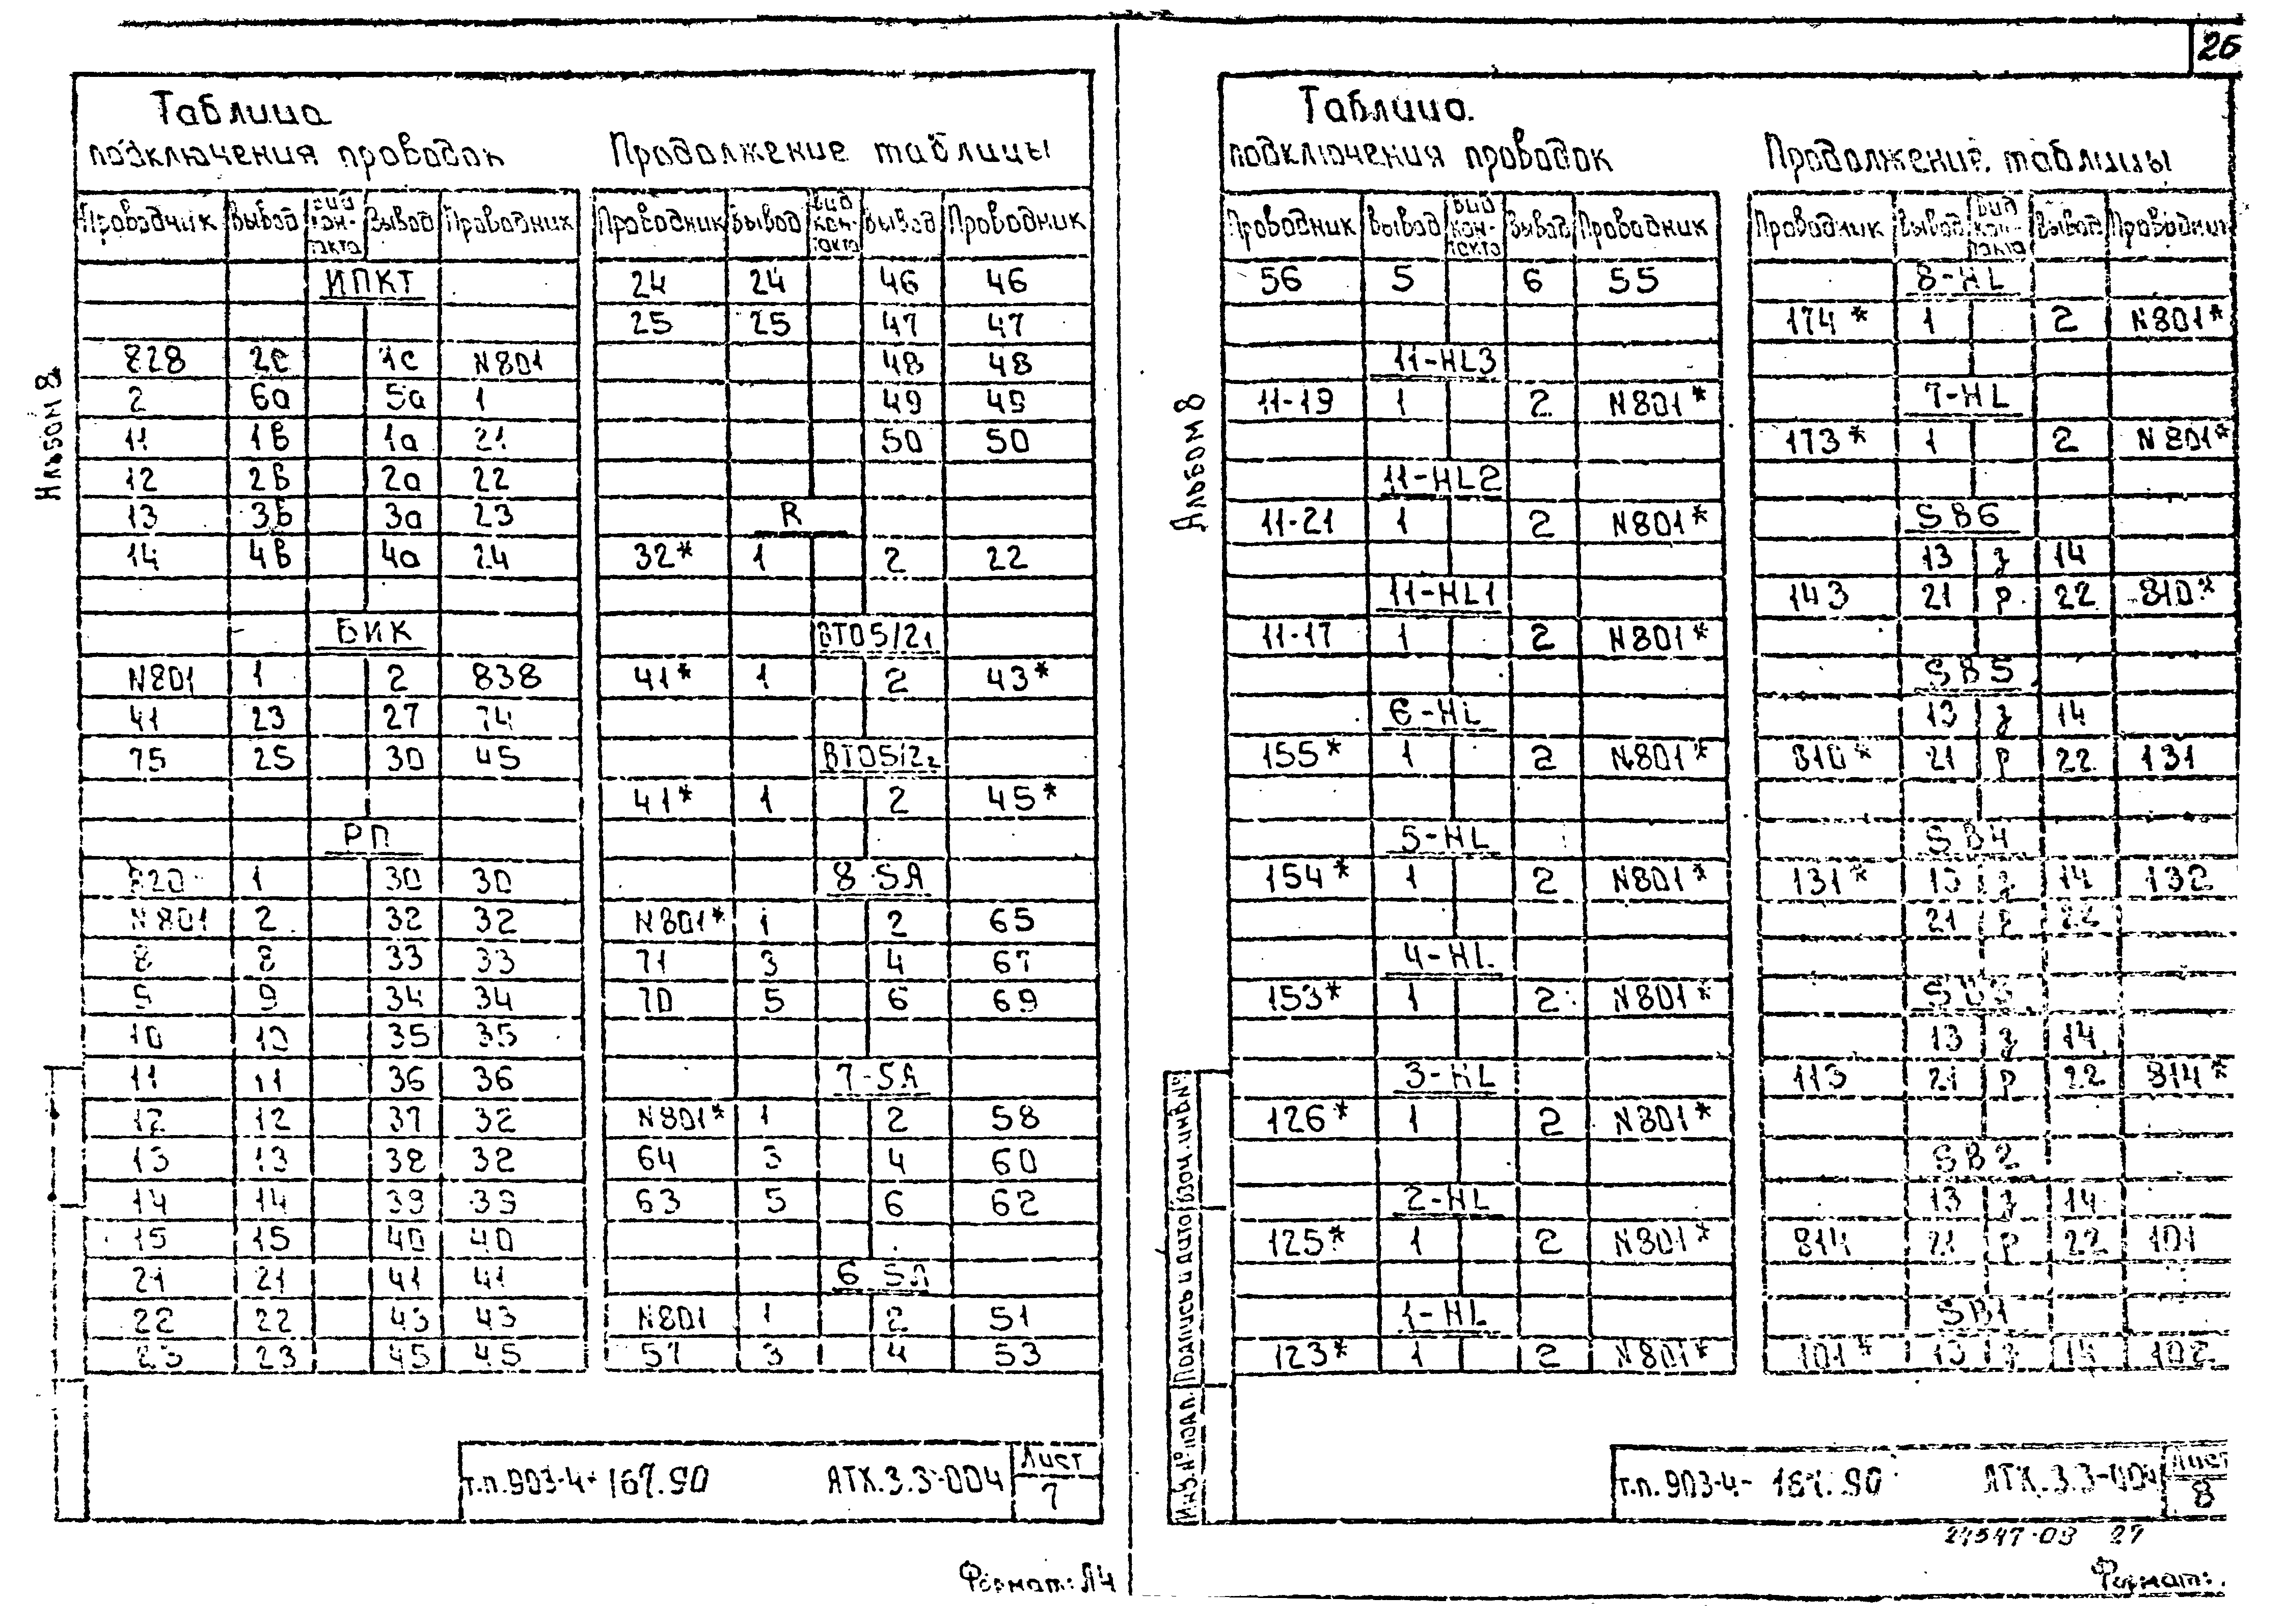 26
Таблица
подключения проводок
Проводник Вывод Вид кон-такта Вывод Проводник
ИПКТ
828 2с 1с N801
2 6а 5а 1
11 1В 1а 21
12 2В 2а 22
13 3Б 3а 23
14 4В 4а 24
БИК
N801 1 2 838
41 23 27 74
75 25 30 45
РП
1 30 30
N801 2 32 32
8 8 33 33
9 9 34 34
10 10 35 35
11 11 36 36
12 12 37 32
13 13 38 32
14 14 39 39
15 15 40 40
21 21 41 41
22 22 43 43
23 23 45 45
Продолжение таблицы
Проводник Вывод Вид кон-такта Вывод Проводник
24 24 46 46
25 25 47 47
48 48
49 49
50 50
R
32* 1 2 22
ВТ05/2₁
41* 1 2 43*
ВТ05/2₂
41* 1 2 45*
8-SA
N801* 1 2 65
71 3 4 67
70 5 6 69
7-SA
N801* 1 2 58
64 3 4 60
63 5 6 62
6 SA
N801 1 2 51
57 3 4 53
Альбом 8
т.п.903-4-167.90 АТХ.3.3-004 Лист
7
Формат: А4
Таблица
подключения проводок
Проводник Вывод Вид кон-такта Вывод Проводник
56 5 6 55
11-HL3
11-19 1 2 N801*
11-HL2
11-21 1 2 N801*
11-HL1
11-17 1 2 N801*
6-HL
155* 1 2 N801*
5-HL
154* 1 2 N801*
4-HL
153* 1 2 N801*
3-HL
126* 1 2 N801*
2-HL
125* 1 2 N801*
1-HL
123* 1 2 N801*
Продолжение таблицы
Проводник Вывод Вид кон-такта Вывод Проводник
8-HL
174* 1 2 N801*
7-HL
173* 1 2 N801*
SB6
13 з 14
143 21 р 22 810*
SB5
13 з 14
810* 21 р 22 131
SB4
131* 13 з 14 132
21 р 22
SB3
13 з 14
113 21 р 22 814*
SB2
13 з 14
814 21 р 22 101
SB1
101* 13 з 14 102
Альбом 8
Инв.№ подл. Подпись и дата Взам. инв №
т.п.903-4-167.90 АТХ.3.3-004 Лист
8
24547-03 27
Формат: